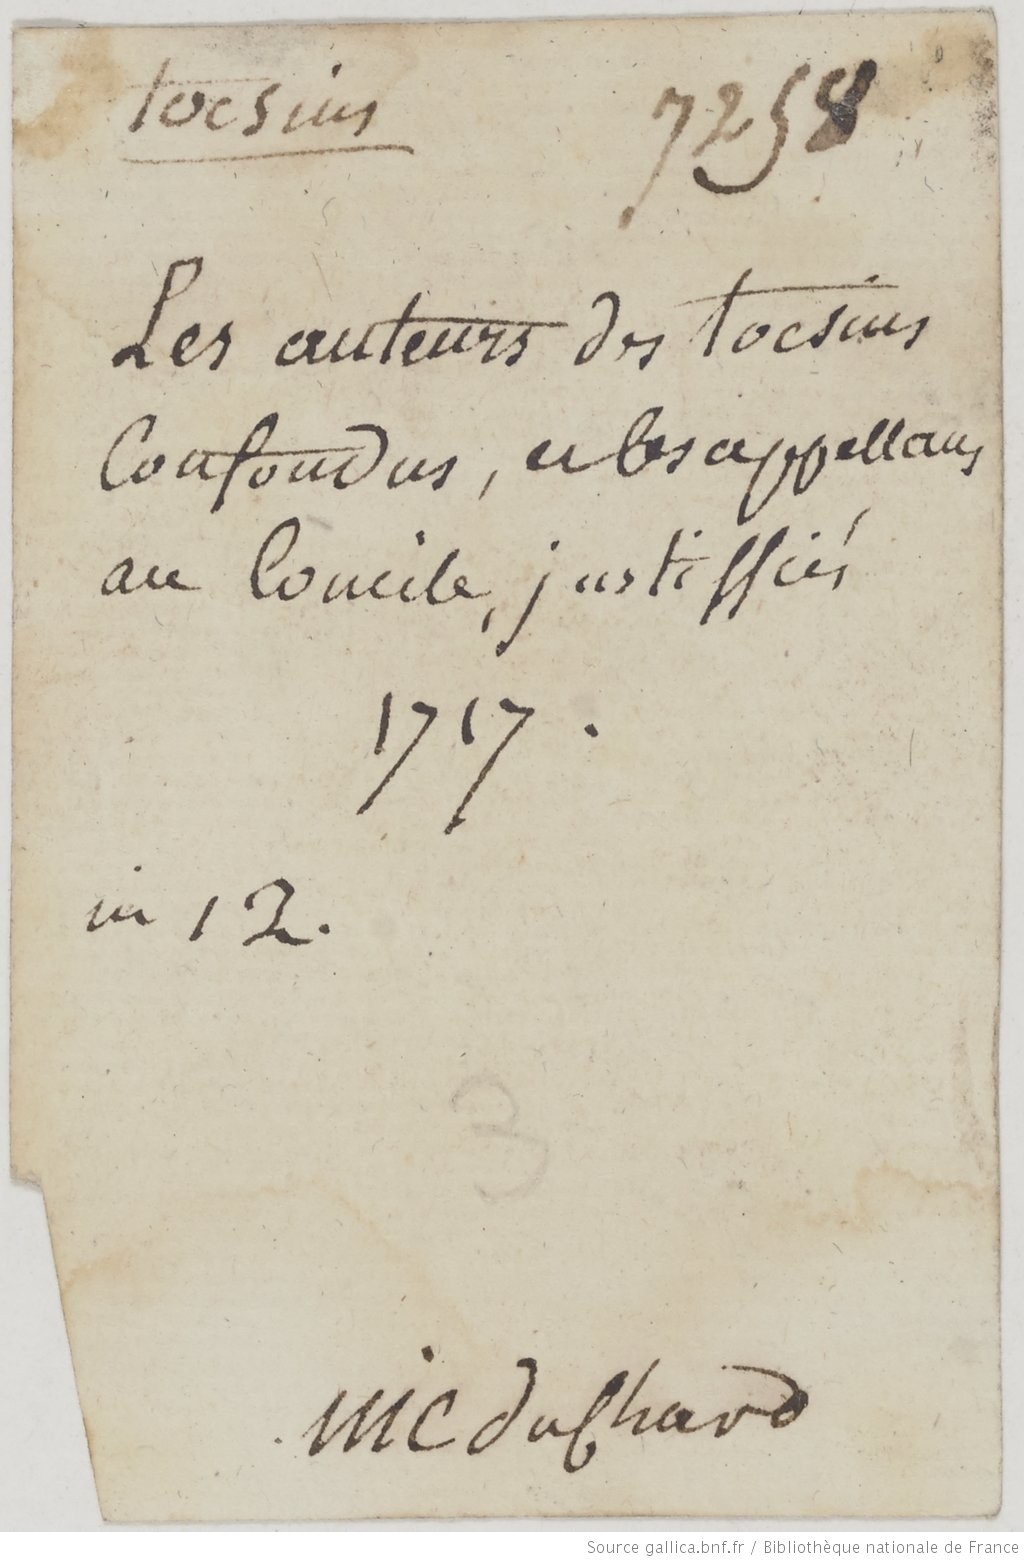 tocsins 7258
Les auteurs des tocsins
Confondus, et les appellans
au Concile, justiffiés
1717.
in 12.
3
Source gallica.bnf.fr / Bibliothèque nationale de France